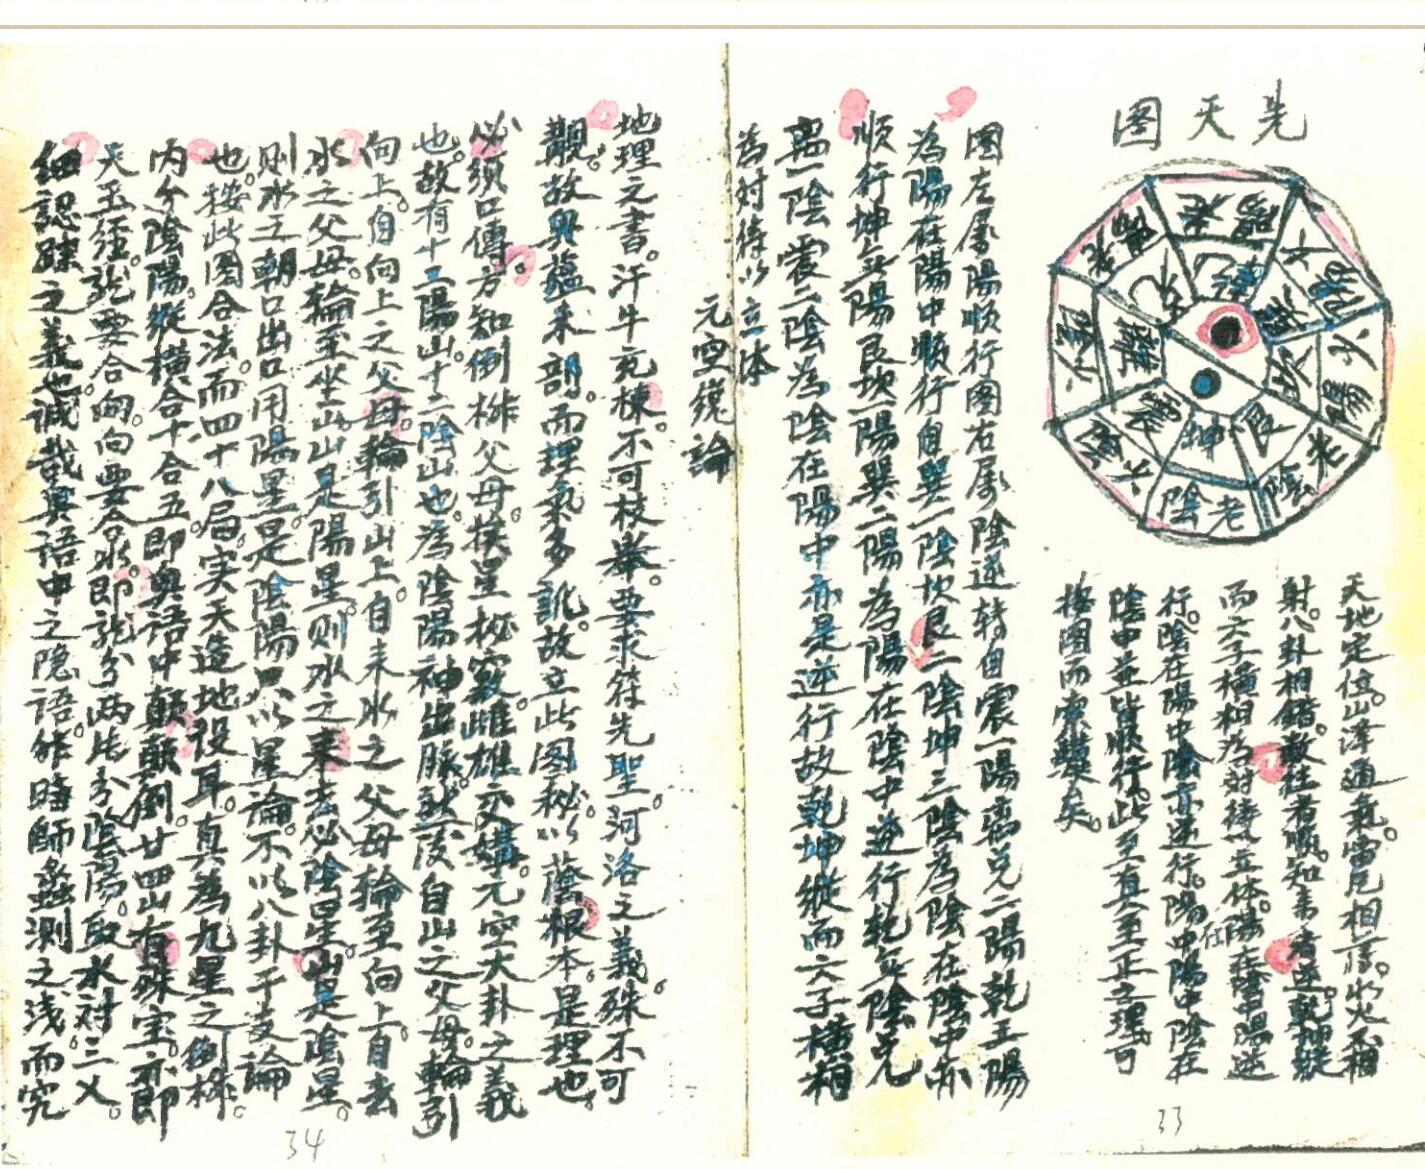 先天图
老陽
少陰
少陽
老陰
老陰
乾
兌
離
震
巽
坎
艮
坤
天地定位。山澤通氣。雷風相薄。水火不相
射。八卦相錯。数往者順。知來者逆。乾坤縱
而六子橫。相为对待立体。陽在陰中陽逆
行。陰在陽中陰亦逆行。陽在陽中陰在
陰中並皆順行。此至真至正之理。可
按图而索驥矣。
图左属陽順行图右属陰逆转自震一陽离兑二陽乾三陽
為陽在陽中順行自巽一陰坎艮二陰坤三陰為陰在陰中亦
顺行坤无陽艮坎一陽巽二陽為陽在陰中逆行乾无陰兑
离一陰震二陰為陰在陽中亦是逆行故乾坤縱而六子橫相
為对待以立体
33
元空總論
地理之書。汗牛充棟。不可枝舉。要求符先聖河洛之義。殊不可
觀。故興蘊未剖。而理氣多訛。故立此图秘。以蔭根本。是理也。
必须口傳。方知倒排父母。挨星秘竅。雌雄交媾。元空大卦之義
也。故有十二陽山。十二陰山也。為陰陽神出脉。然後自山之父母。輪引
向上。自向上之父母。輪引山上。自来水之父母輪至向上。自去
水之父母。輪至坐山。山是陽星。則水之来去必陰星。山是陰星。
則水工朝口出口用陽星。是陰陽只以星論。不以八卦干支論
也。按此图合法。而四十八局。实天造地设耳。真為九星之倒排。
内分陰陽。縱橫合十合五。即奥語中顛顛倒。廿四山有殊宝。亦即
天玉經。龍要合向。向要合水。即龍分两片分陰陽。取水对三乂。
細認踪之義也。诚哉奥語中之隐語。非時師蠡测之浅。而究
34